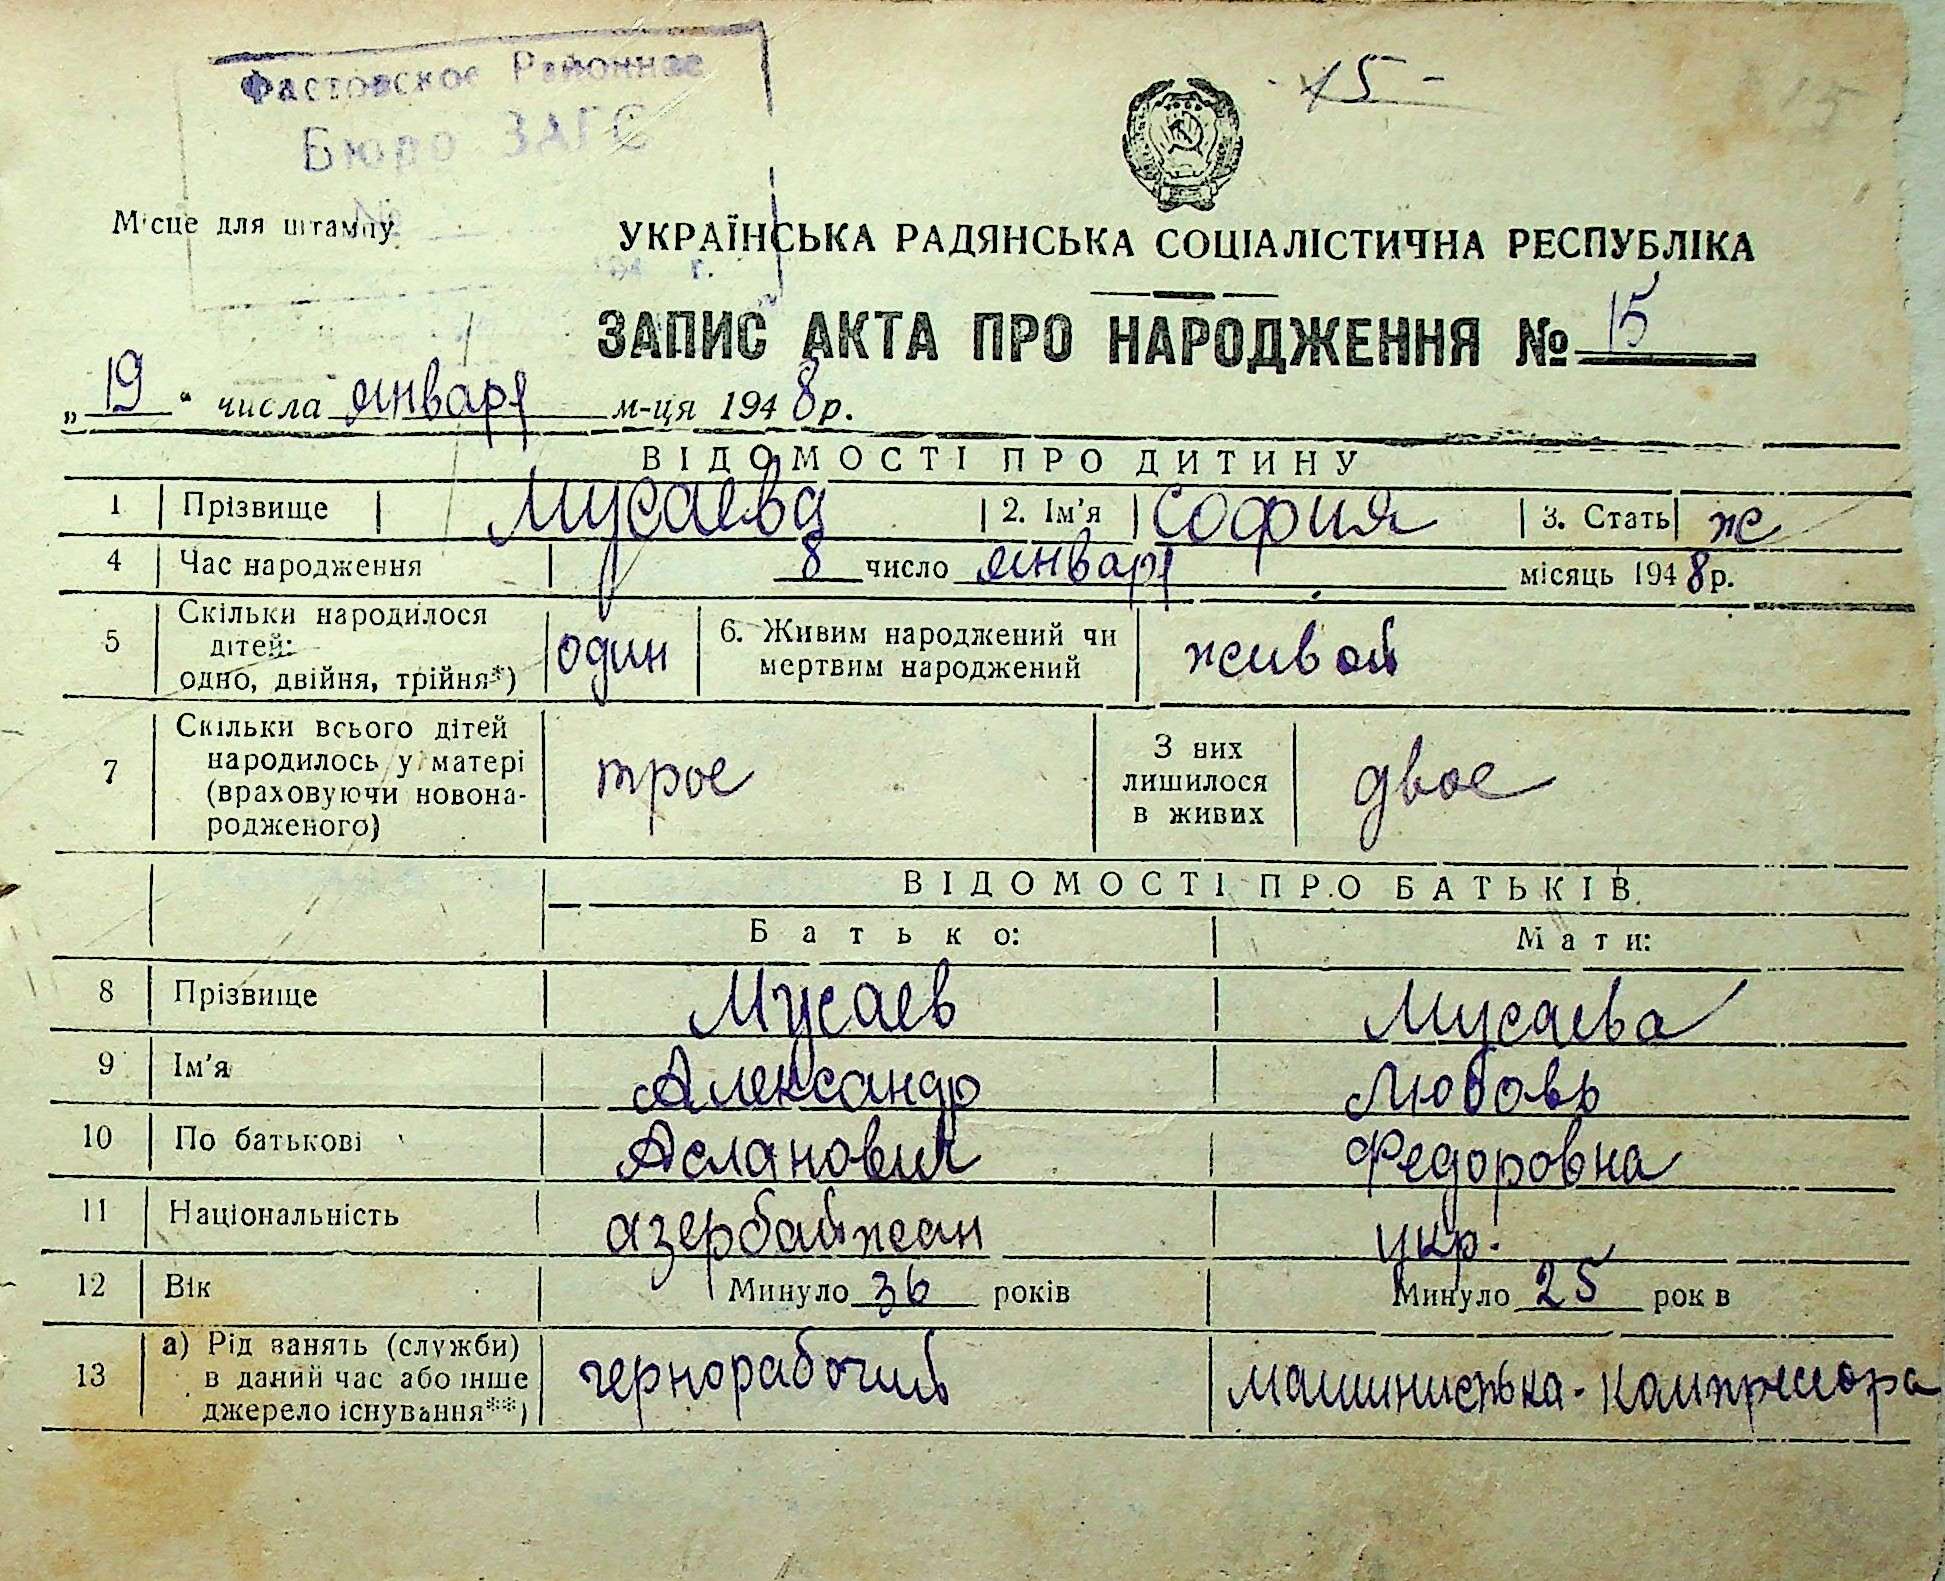 Фастовское Районное
Бюро ЗАГС
№
194 г.
- 15 -
15
Місце для штампу
УКРАЇНСЬКА РАДЯНСЬКА СОЦІАЛІСТИЧНА РЕСПУБЛІКА
ЗАПИС АКТА ПРО НАРОДЖЕННЯ № 15
„19“ числа января м-ця 1948р.
ВІДОМОСТІ ПРО ДИТИНУ
1 Прізвище Мусаева 2. Ім'я София 3. Стать ж
4 Час народження 8 число января місяць 1948р.
5 Скільки народилося дітей: одно, двійня, трійня*) один 6. Живим народжений чи мертвим народжений живой
7 Скільки всього дітей народилось у матері (враховуючи новонародженого) трое З них лишилося в живих двое
ВІДОМОСТІ ПРО БАТЬКІВ
Батько: Мати:
8 Прізвище Мусаев Мусаева
9 Ім'я Александр Любовь
10 По батькові Асланович Федоровна
11 Національність азербайжан укр.
12 Вік Минуло 36 років Минуло 25 рок в
13 а) Рід занять (служби) в даний час або інше джерело існування**) чернорабочий машинистька-компресора